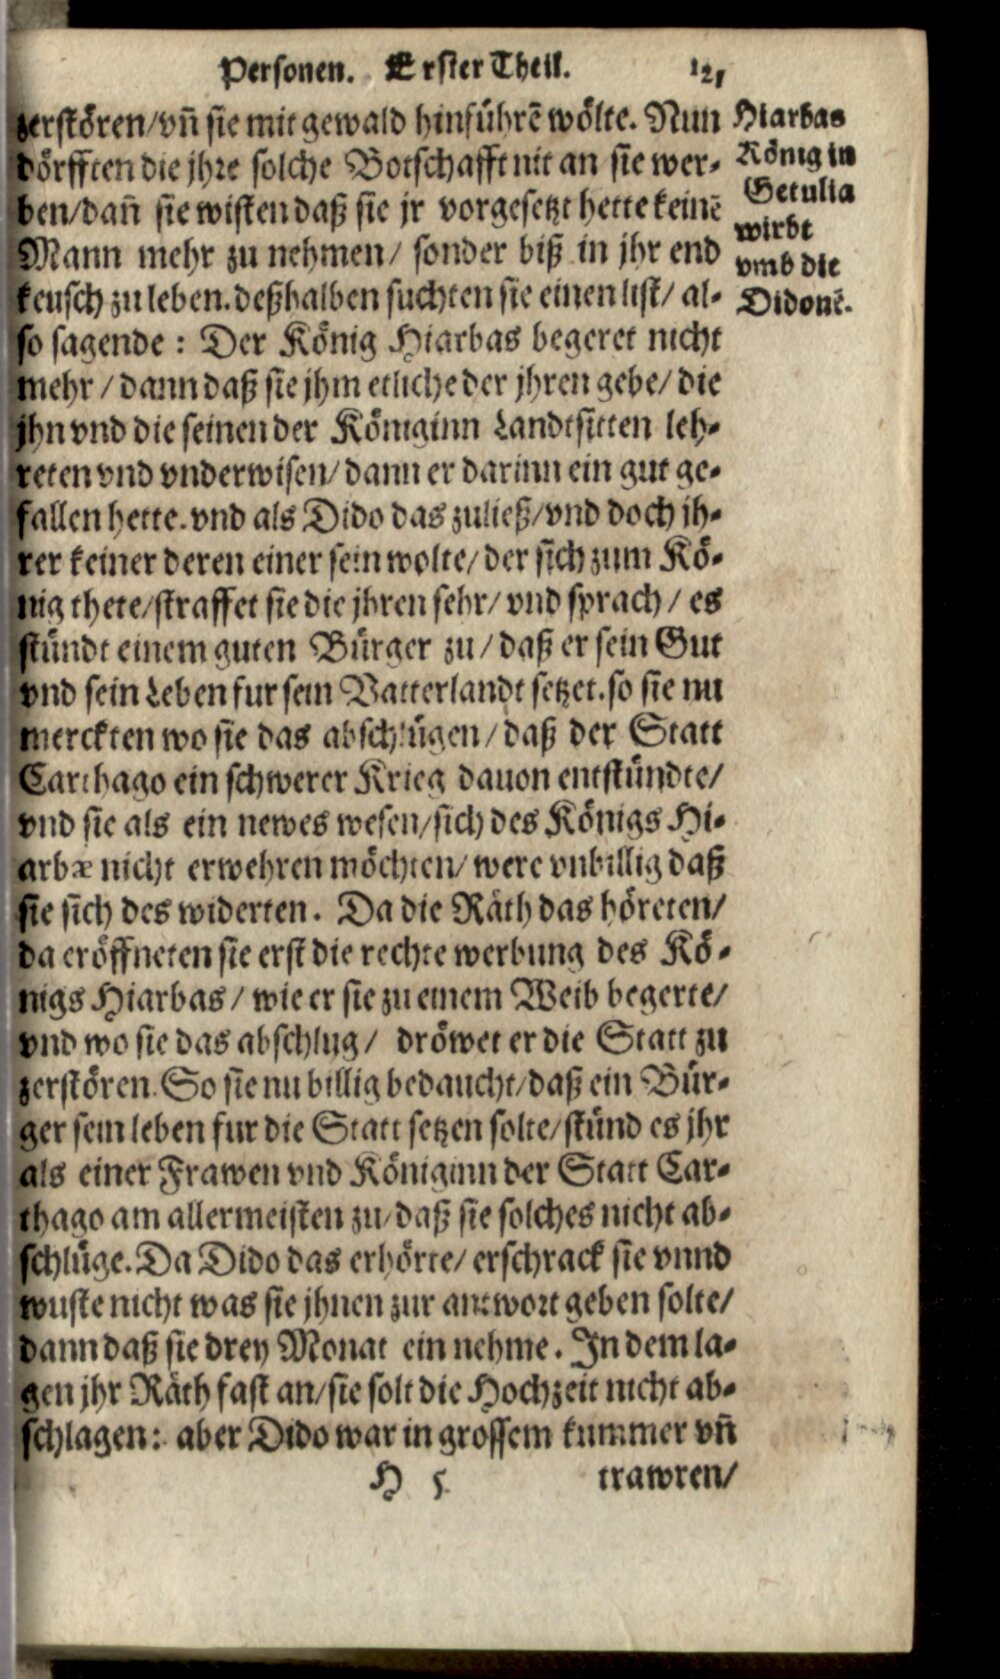 Personen. Erster Theil. 121
zerstören/vñ sie mit gewald hinführẽ wölte. Nun
dörfften die jhre solche Botschafft nit an sie wer-
ben/dañ sie wisten daß sie jr vorgesetzt hette keinẽ
Mann mehr zu nehmen/ sonder biß in jhr end
keusch zu leben. deßhalben suchten sie einen list/ al-
so sagende: Der König Hiarbas begeret nicht
mehr/ dann daß sie jhm etliche der jhren gebe/ die
jhn vnd die seinen der Königinn Landtsitten leh-
reten vnd vnderwisen/ dann er darinn ein gut ge-
fallen hette. vnd als Dido das zuließ/ vnd doch jh-
rer keiner deren einer sein wolte/ der sich zum Kö-
nig thete/ straffet sie die jhren sehr/ vnd sprach/ es
stündt einem guten Bürger zu/ daß er sein Gut
vnd sein Leben fur sein Vatterlandt setzet. so sie nu
merckten wo sie das abschlügen/ daß der Statt
Carthago ein schwerer Krieg dauon entstündte/
vnd sie als ein newes wesen/ sich des Königs Hi-
arbæ nicht erwehren möchten/ were vnbillig daß
sie sich des widerten. Da die Räth das höreten/
da eröffneten sie erst die rechte werbung des Kö-
nigs Hiarbas/ wie er sie zu einem Weib begerte/
vnd wo sie das abschlug/ dröwet er die Statt zu
zerstören. So sie nu billig bedaucht/ daß ein Bür-
ger sein leben fur die Statt setzen solte/ stünd es jhr
als einer Frawen vnd Königinn der Statt Car-
thago am allermeisten zu/ daß sie solches nicht ab-
schlüge. Da Dido das erhörte/ erschrack sie vnnd
wuste nicht was sie jhnen zur antwort geben solte/
dann daß sie drey Monat ein nehme. In dem la-
gen jhr Räth fast an/ sie solt die Hochzeit nicht ab-
schlagen: aber Dido war in grossem kummer vñ
H 5 trawren/
Hiarbas
König in
Getulia
wirbt
vmb die
Didonẽ.